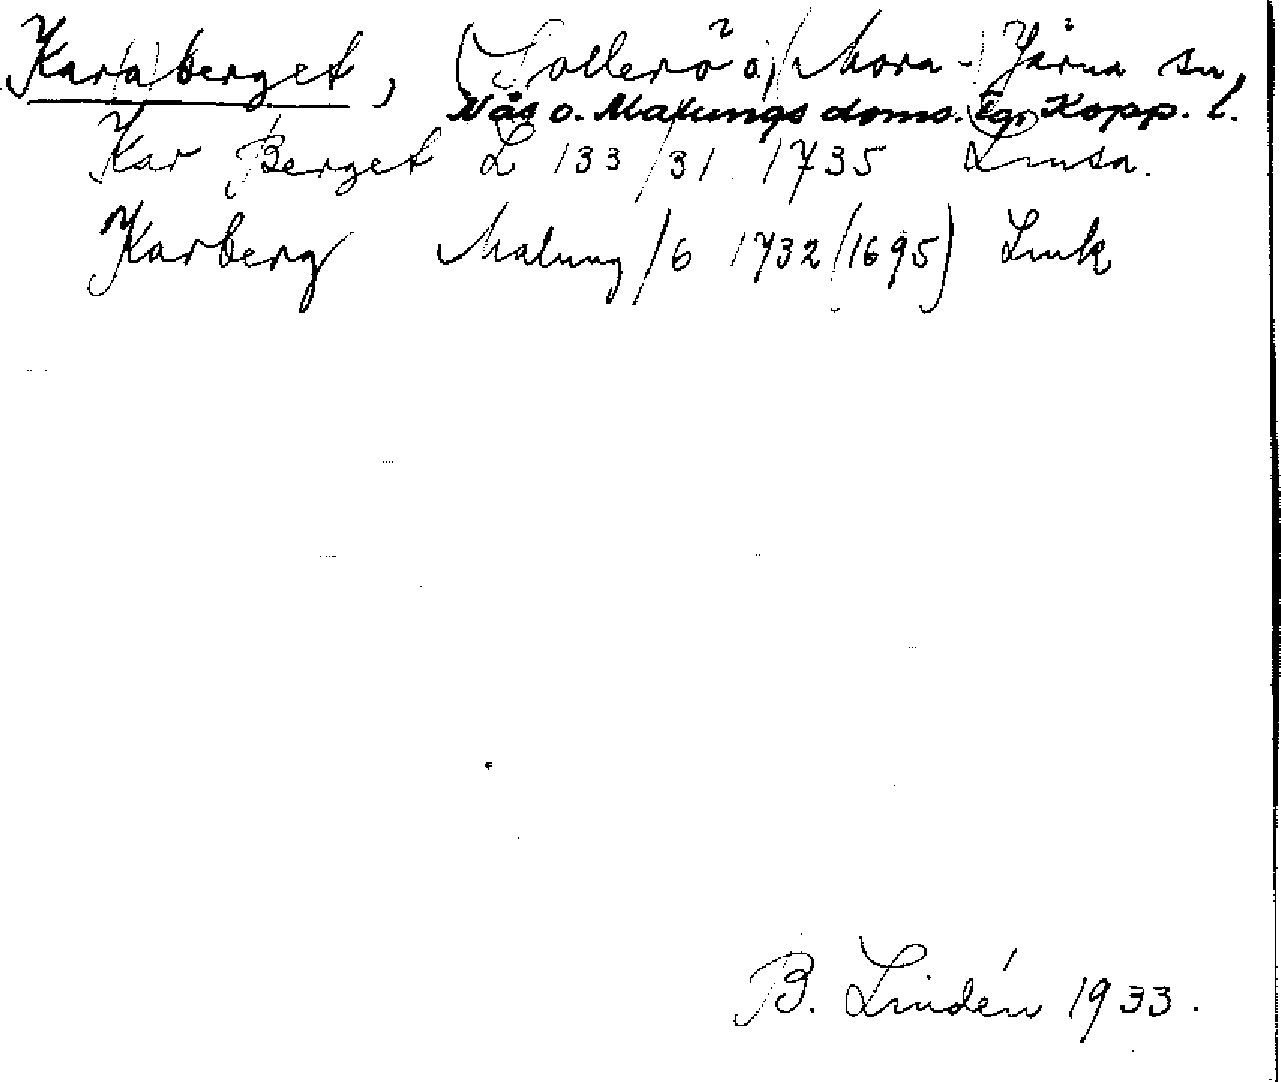 Kar(a)berget, (Sollerö ö, (Mora-) Järna sn,
Näs o. Malungs doms. lgr Kopp. l.
Kar Berget L 133/31 1735 Lmsa.
Karberg Malung/6 1732 (1695) Lmk
B. Lindén 1933.